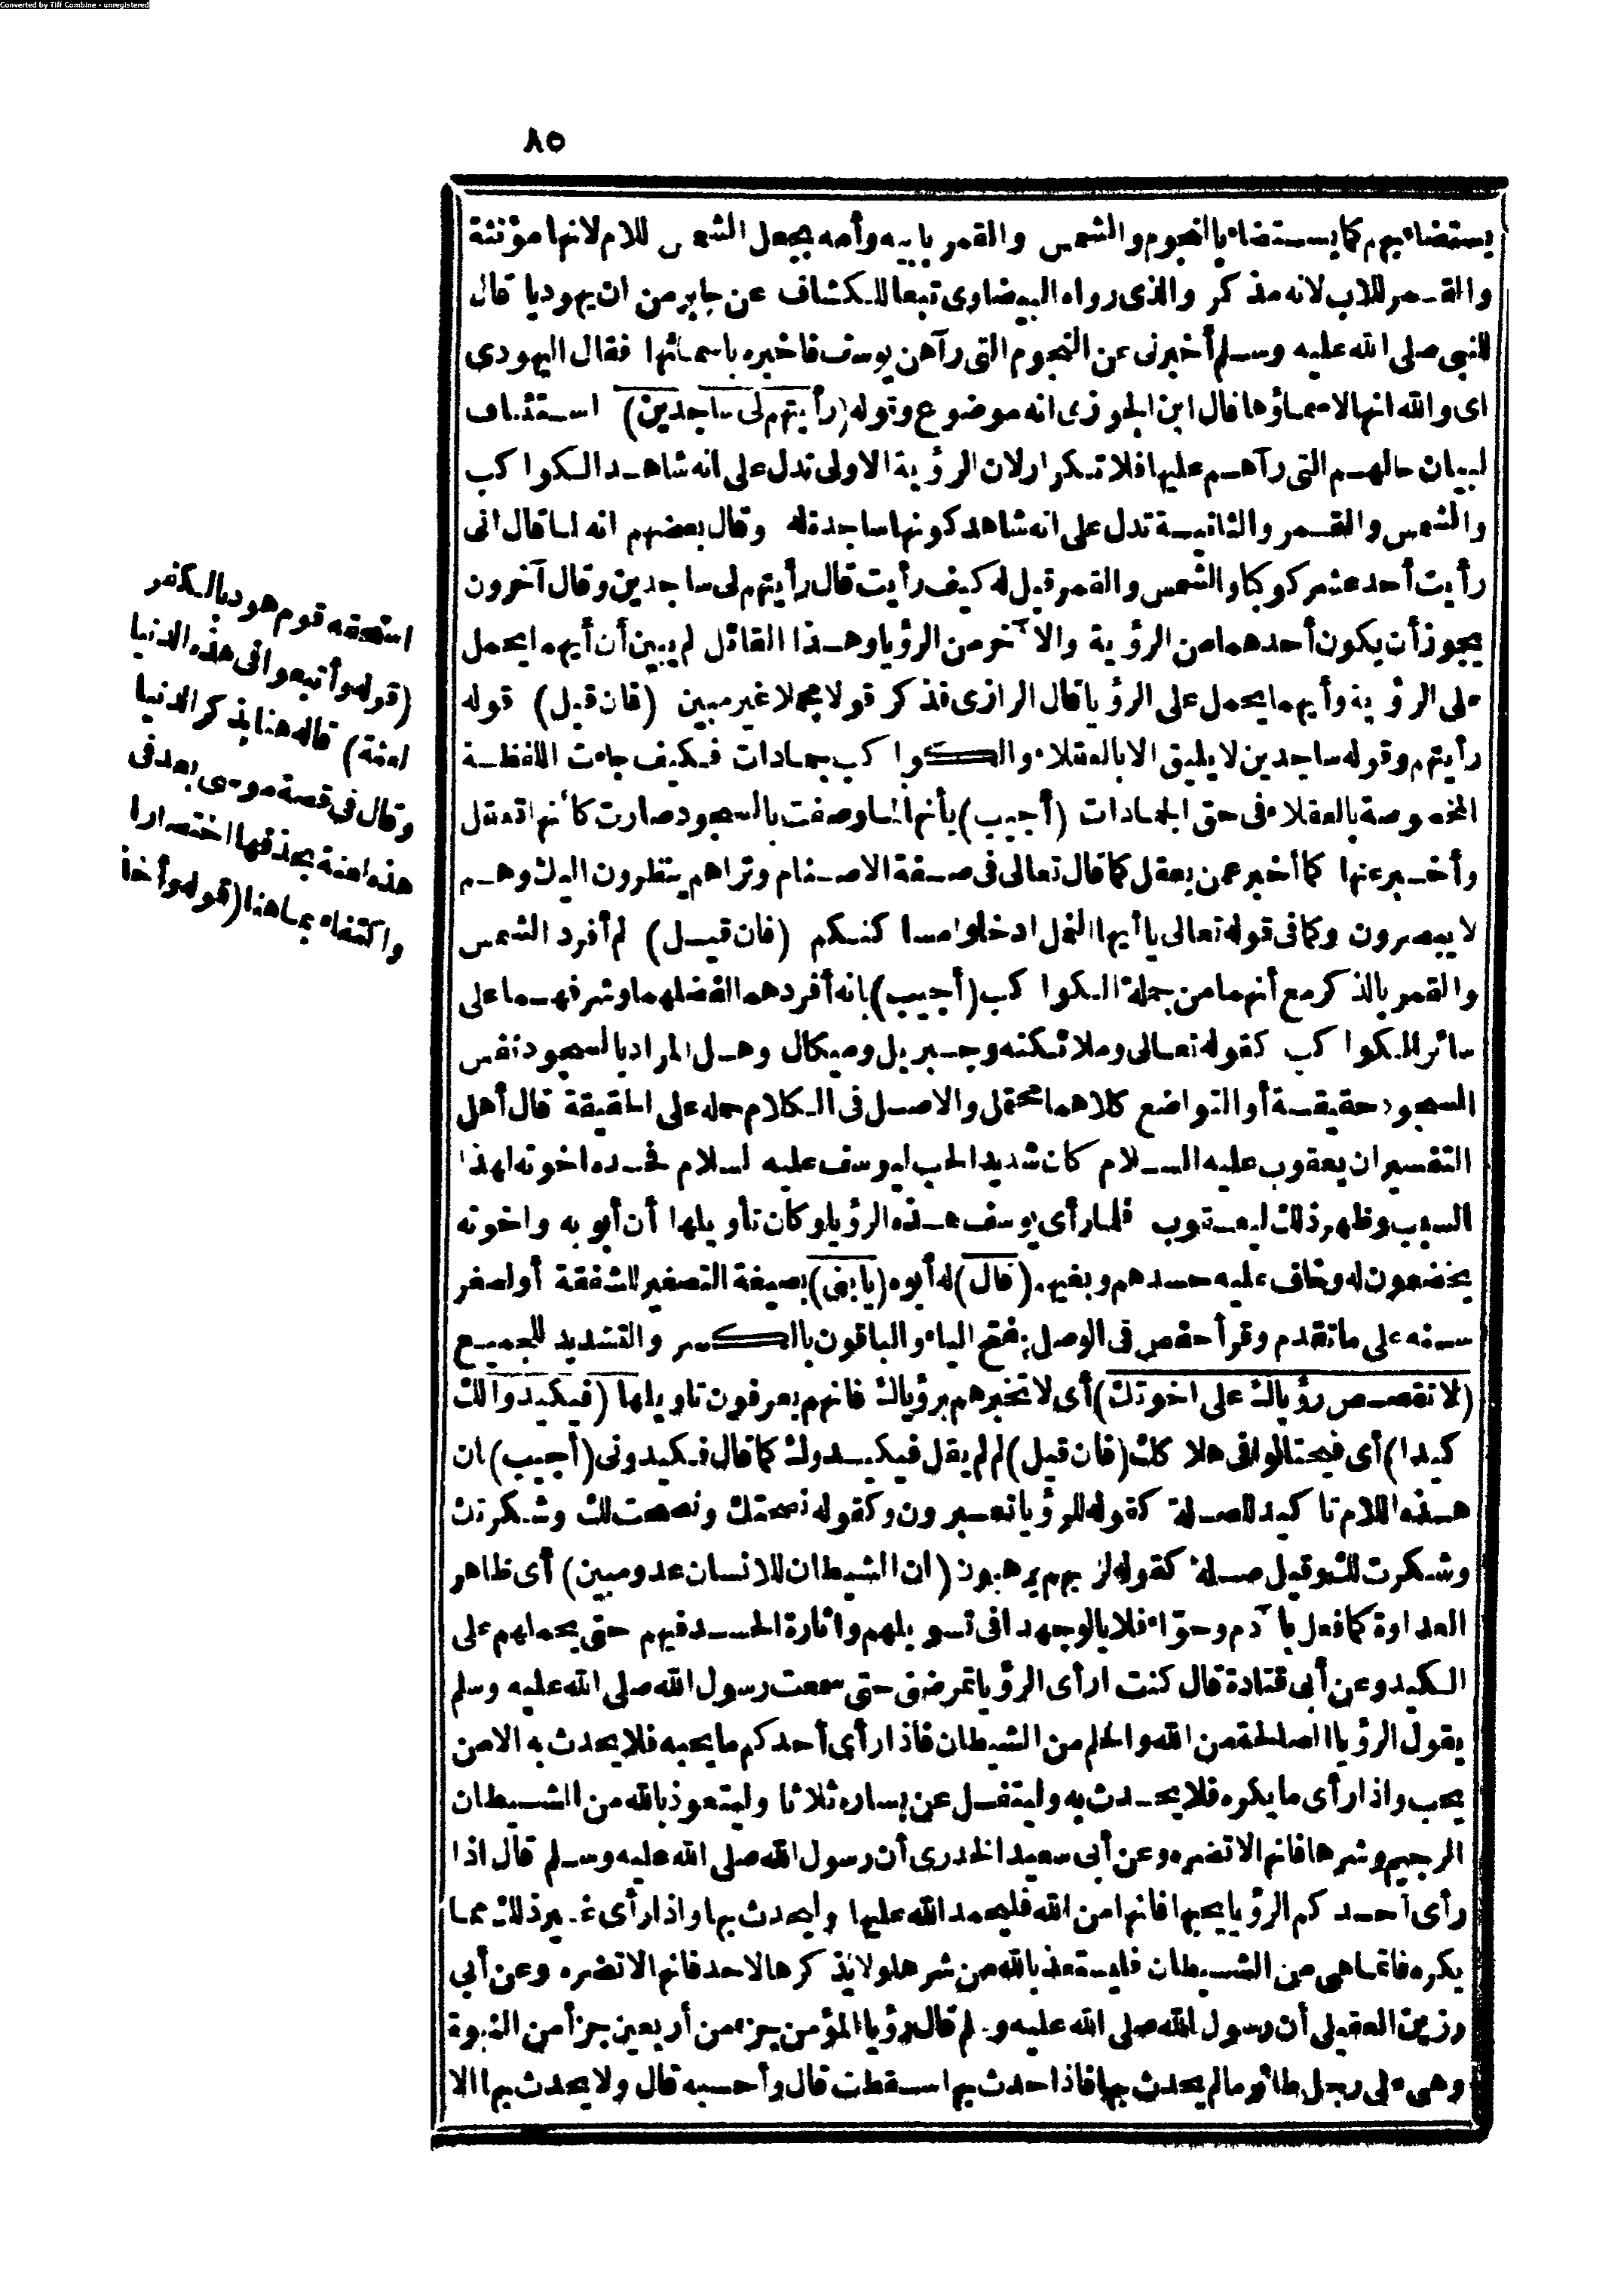 Converted by Tiff Combine - unregistered
٨٥
يستضاء بهم كما يستضاء بالنجوم والشمس والقمر بابيه وأمه بجعل الشمس للام لانها مؤنثة
والقمر للاب لانه مذكر والذى رواه البيضاوى تبعا للكشاف عن جابر من ان يهوديا قال
للنبى صلى الله عليه وسلم أخبرنى عن النجوم التى رآهن يوسف فاخبره باسمائها فقال اليهودى
اى والله انها لاسماؤها قال ابن الجوزى انه موضوع وقوله (رأيتهم لى ساجدين) استئناف
لبيان حالهم التى رآهم عليها فلا تكرار لان الرؤية الاولى تدل على انه شاهد الكواكب
والشمس والقمر والثانية تدل على انه شاهد كونها ساجدة له وقال بعضهم انه لما قال انى
رأيت أحد عشر كوكبا والشمس والقمر قيل له كيف رأيت قال رأيتهم لى ساجدين وقال آخرون
يجوز أن يكون أحدهما من الرؤية والآخر من الرؤيا وهذا القائل لم يبين أن أيهما يحمل
على الرؤية وأيهما يحمل على الرؤيا قال الرازى فذكر قولا مجملا غير مبين (فان قيل) قوله
رأيتهم وقوله ساجدين لا يليق الا بالعقلاء والكواكب جمادات فكيف جاءت اللفظة
المخصوصة بالعقلاء فى حق الجمادات (أجيب) بأنها لما وصفت بالسجود صارت كأنها تعقل
وأخبر عنها كما أخبر عمن يعقل كما قال تعالى فى صفة الاصنام وتراهم ينظرون اليك وهم
لا يبصرون وكما فى قوله تعالى يا أيها النمل ادخلوا مساكنكم (فان قيل) لم أفرد الشمس
والقمر بالذكر مع أنهما من جملة الكواكب (أجيب) بانه أفردهما لفضلهما وشرفهما على
سائر الكواكب كقوله تعالى وملائكته وجبريل وميكال وهل المراد بالسجود نفس
السجود حقيقة أو التواضع كلاهما محتمل والاصل فى الكلام حمله على الحقيقة قال أهل
التفسير ان يعقوب عليه السلام كان شديد الحب ليوسف عليه لسلام فحسده اخوته لهذا
السبب وظهر ذلك ليعقوب فلما رأى يوسف هذه الرؤيا وكان تأويلها أن أبويه واخوته
يخضعون له وخاف عليه حسدهم وبغيهم (قال) له أبوه (يا بنى) بصيغة التصغير للشفقة أو لصغر
سنه على ما تقدم وقرأ حفص فى الوصل بفتح الياء والباقون بالكسر والتشديد للجميع
(لا تقصص رؤياك على اخوتك) أى لا تخبرهم برؤياك فانهم يعرفون تاويلها (فيكيدوا لك
كيدا) أى فيحتالوا فى هلاكك (فان قيل) لم لم يقل فيكيدوك كما قال فكيدونى (أجيب) ان
هذه اللام تاكيد للصلة كقوله للرؤيا تعبرون وكقوله نصحتك ونصحت لك وشكرتك
وشكرت لك وقيل صلة كقوله لربهم يرهبون (ان الشيطان للانسان عدو مبين) أى ظاهر
العداوة كما فعل بآدم وحوّاء فلا يالو جهدا فى تسويلهم واثارة الحسد فيهم حتى يحملهم على
الكيد وعن أبى قتادة قال كنت ارأى الرؤيا تمرضنى حتى سمعت رسول الله صلى الله عليه وسلم
يقول الرؤيا الصالحة من الله والحلم من الشيطان فاذا رأى أحدكم ما يحبه فلا يحدث به الا من
يحب واذا رأى ما يكره فلا يحدث به وليتفل عن يساره ثلاثا وليتعوذ بالله من الشيطان
الرجيم وشرها فانها لا تضره وعن أبى سعيد الخدرى أن رسول الله صلى الله عليه وسلم قال اذا
رأى أحدكم الرؤيا يحبها فانها من الله فليحمد الله عليها وليحدث بها واذا رأى غير ذلك مما
يكره فانما هى من الشيطان فليستعذ بالله من شرها ولا يذكرها لاحد فانها لا تضره وعن أبى
رزين العقيلى أن رسول الله صلى الله عليه وسلم قال رؤيا المؤمن جزء من أربعين جزأ من النبوة
وهى على رجل طائر ما لم يحدث بها فاذا حدث بها سقطت قال وأحسبه قال ولا يحدث بها الا
استحقه قوم هود بالكفر
(قوله وأتبعوا فى هذه الدنيا
لعنة) قاله هنا بذكر الدنيا
وقال فى قصة موسى بعد فى
هذه لعنة بحذفها اختصارا
واكتفاء بما هنا (قوله وأخذ